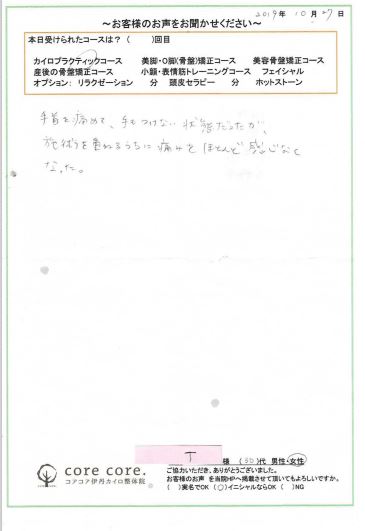 2019年 10月 27日
～お客様のお声をお聞かせください～
本日受けられたコースは？（　　）回目
カイロプラクティックコース　美脚・O脚(骨盤)矯正コース　美容骨盤矯正コース
産後の骨盤矯正コース　小顔・表情筋トレーニングコース　フェイシャル
オプション：リラクゼーション　分　頭皮セラピー　分　ホットストーン
手首を痛めて、手もつけない状態だったが、
施術を重ねるうちに痛みをほとんど感じなく
なった。
T
様 (50)代 男性・女性
core core.
コアコア伊丹カイロ整体院
ご協力いただき、ありがとうございました。
お客様のお声を当院HPへ掲載させて頂いてもよろしいですか。
(　)実名でOK (○)イニシャルならOK (　)NG